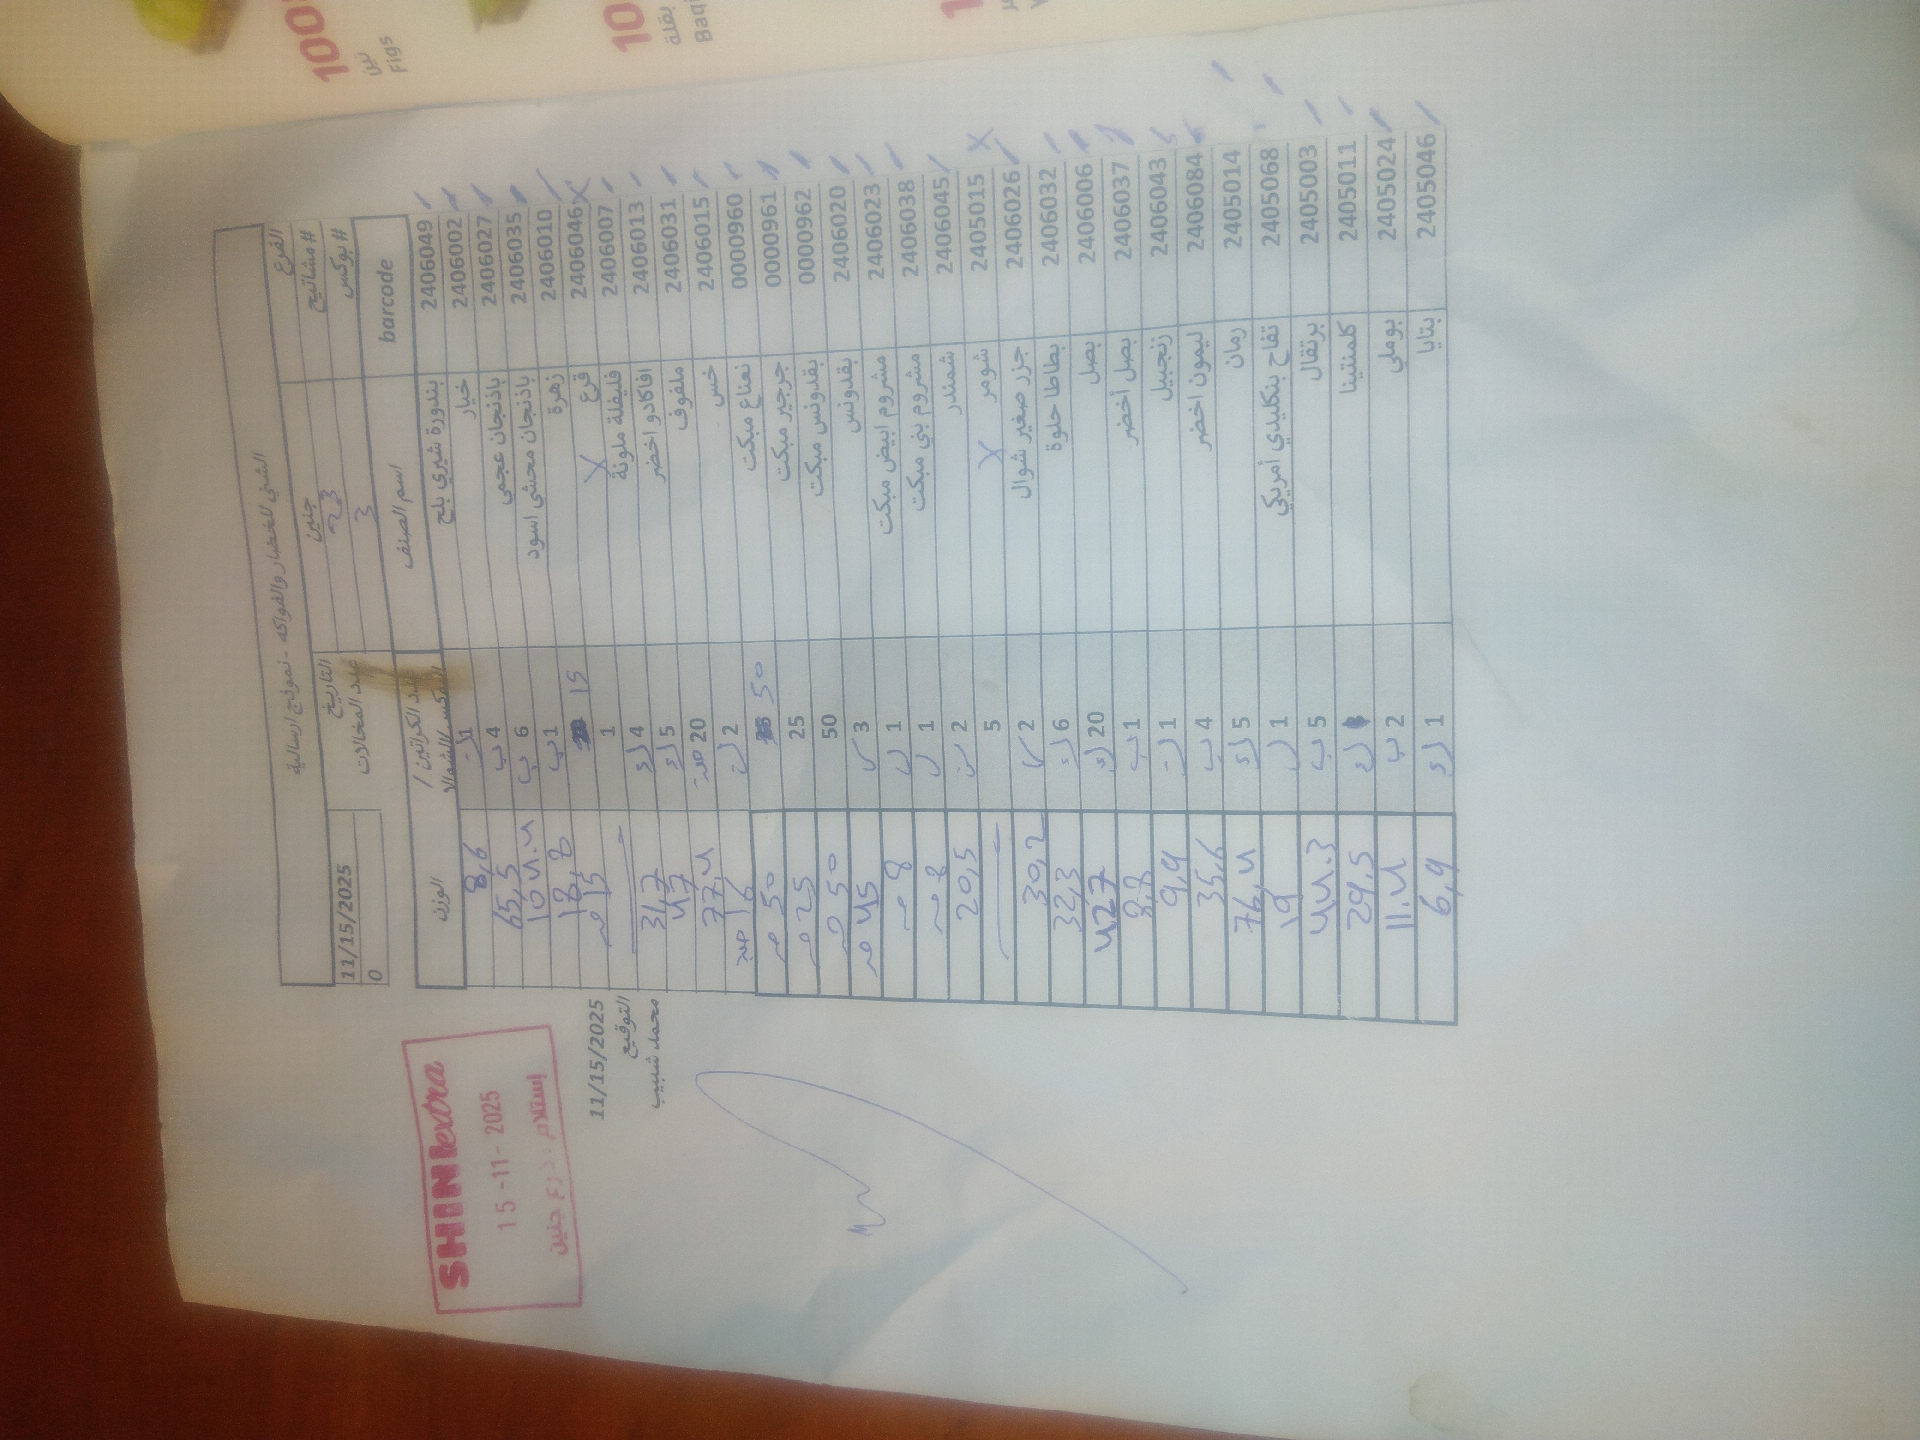 الشني للخضار والفواكه - نموذج ارسالية
الفرع جنين التاريخ 11/15/2025
#مشاتيح 23 عدد المخالات 0
#بوكس 3
barcode اسم الصنف عدد الكراتين / البكس/الشوال الوزن
2406049 بندورة شيري بلح 1 8,6
2406002 خيار 4 ب 65,5
2406027 باذنجان عجمي 6 ب 104.4
2406035 باذنجان محشي اسود 1 ب 18,8
2406010 زهرة 15 15
2406046 X قرع X 1
2406007 فليفلة ملونة 4 31,7
2406013 افاكادو اخضر 5 47
2406031 ملفوف 20 77,4
2406015 خس 2 16
0000960 نعناع مبكت 50 50
0000961 جرجير مبكت 25 25
0000962 بقدونس مبكت 50 50
2406020 بقدونس 3 45
2406023 مشروم ابيض مبكت 1 8
2406038 مشروم بني مبكت 1 8
2406045 شمندر 2 20,5
2405015 X شومر X 5
2406026 جزر صغير شوال 2 30,2
2406032 بطاطا حلوة 6 32,3
2406006 بصل 20 427
2406037 بصل أخضر 1 ب 8,8
2406043 زنجبيل 1 9,9
2406084 ليمون اخضر 4 ب 35,6
2405014 رمان 5 76,4
2405068 تفاح بنكليدي أمريكي 1 19
2405003 برتقال 5 ب 44.3
2405011 كلمنتينا 29,5
2405024 بوملي 2 ب 11.4
2405046 بتايا 1 6,9
11/15/2025
التوقيع
محمد شبيب
SHINI extra
15-11-2025
إستلام: فرع جنين
100
تين
Figs
10
بقلة
Baqi